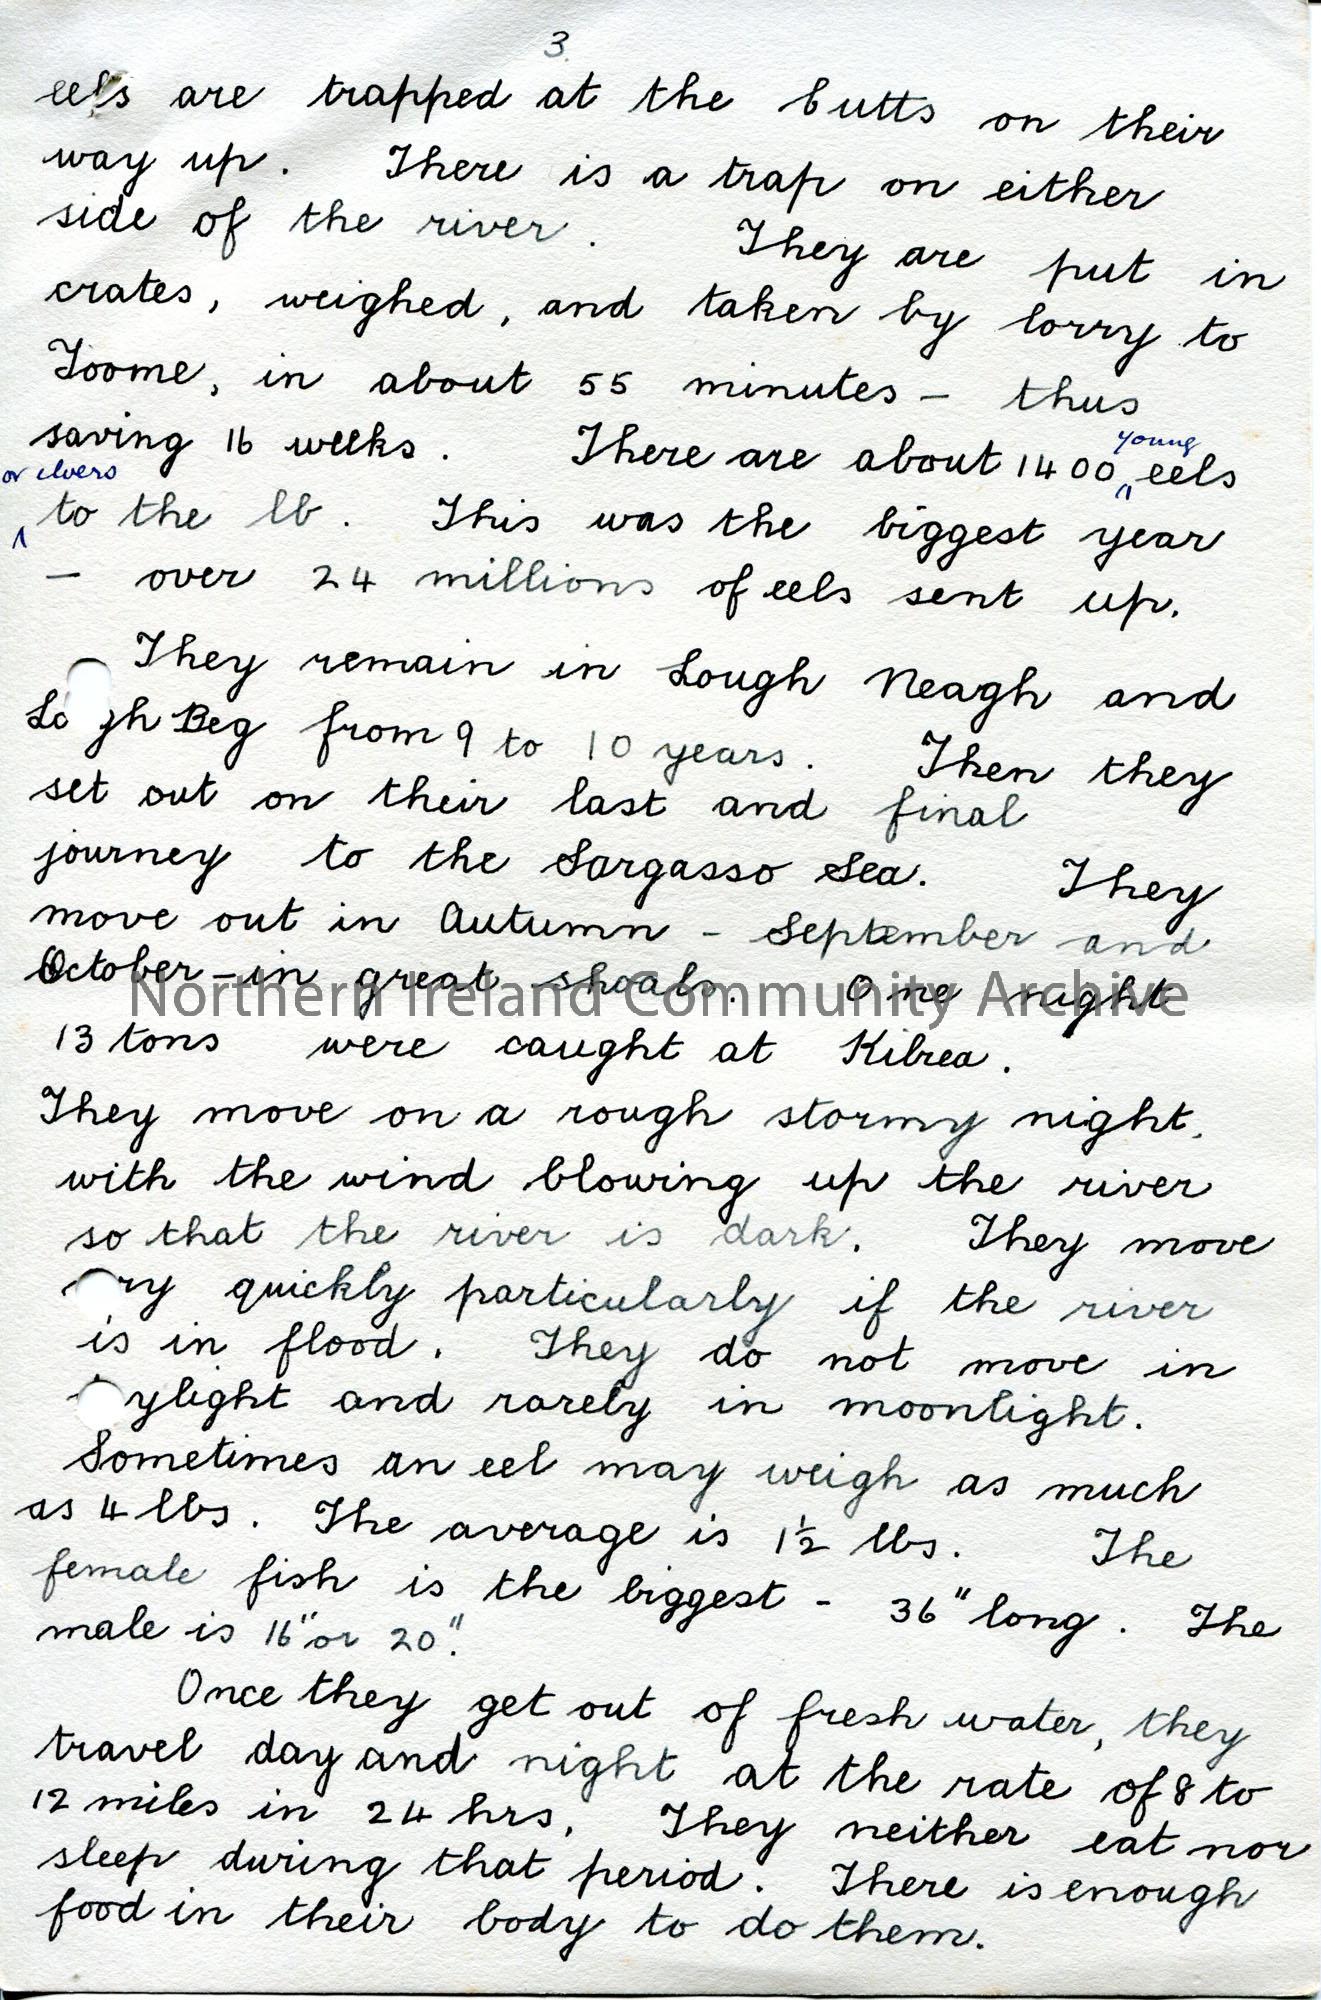 3.
eels are trapped at the butts on their
way up. There is a trap on either
side of the river. They are put in
crates, weighed, and taken by lorry to
Toome, in about 55 minutes - thus
saving 16 weeks. There are about 1400 young eels
or elvers to the lb. This was the biggest year
- over 24 millions of eels sent up.
They remain in Lough Neagh and
Lo gh Beg from 9 to 10 years. Then they
set out on their last and final
journey to the Sargasso Sea. They
move out in Autumn - September and
October - in great shoals. One night
Northern Ireland Community Archive
13 tons were caught at Kilrea.
They move on a rough stormy night,
with the wind blowing up the river
so that the river is dark. They move
ry quickly particularly if the river
is in flood. They do not move in
ylight and rarely in moonlight.
Sometimes an eel may weigh as much
as 4 lbs. The average is 1½ lbs. The
female fish is the biggest - 36" long. The
male is 16" or 20".
Once they get out of fresh water, they
travel day and night at the rate of 8 to
12 miles in 24 hrs. They neither eat nor
sleep during that period. There is enough
food in their body to do them.